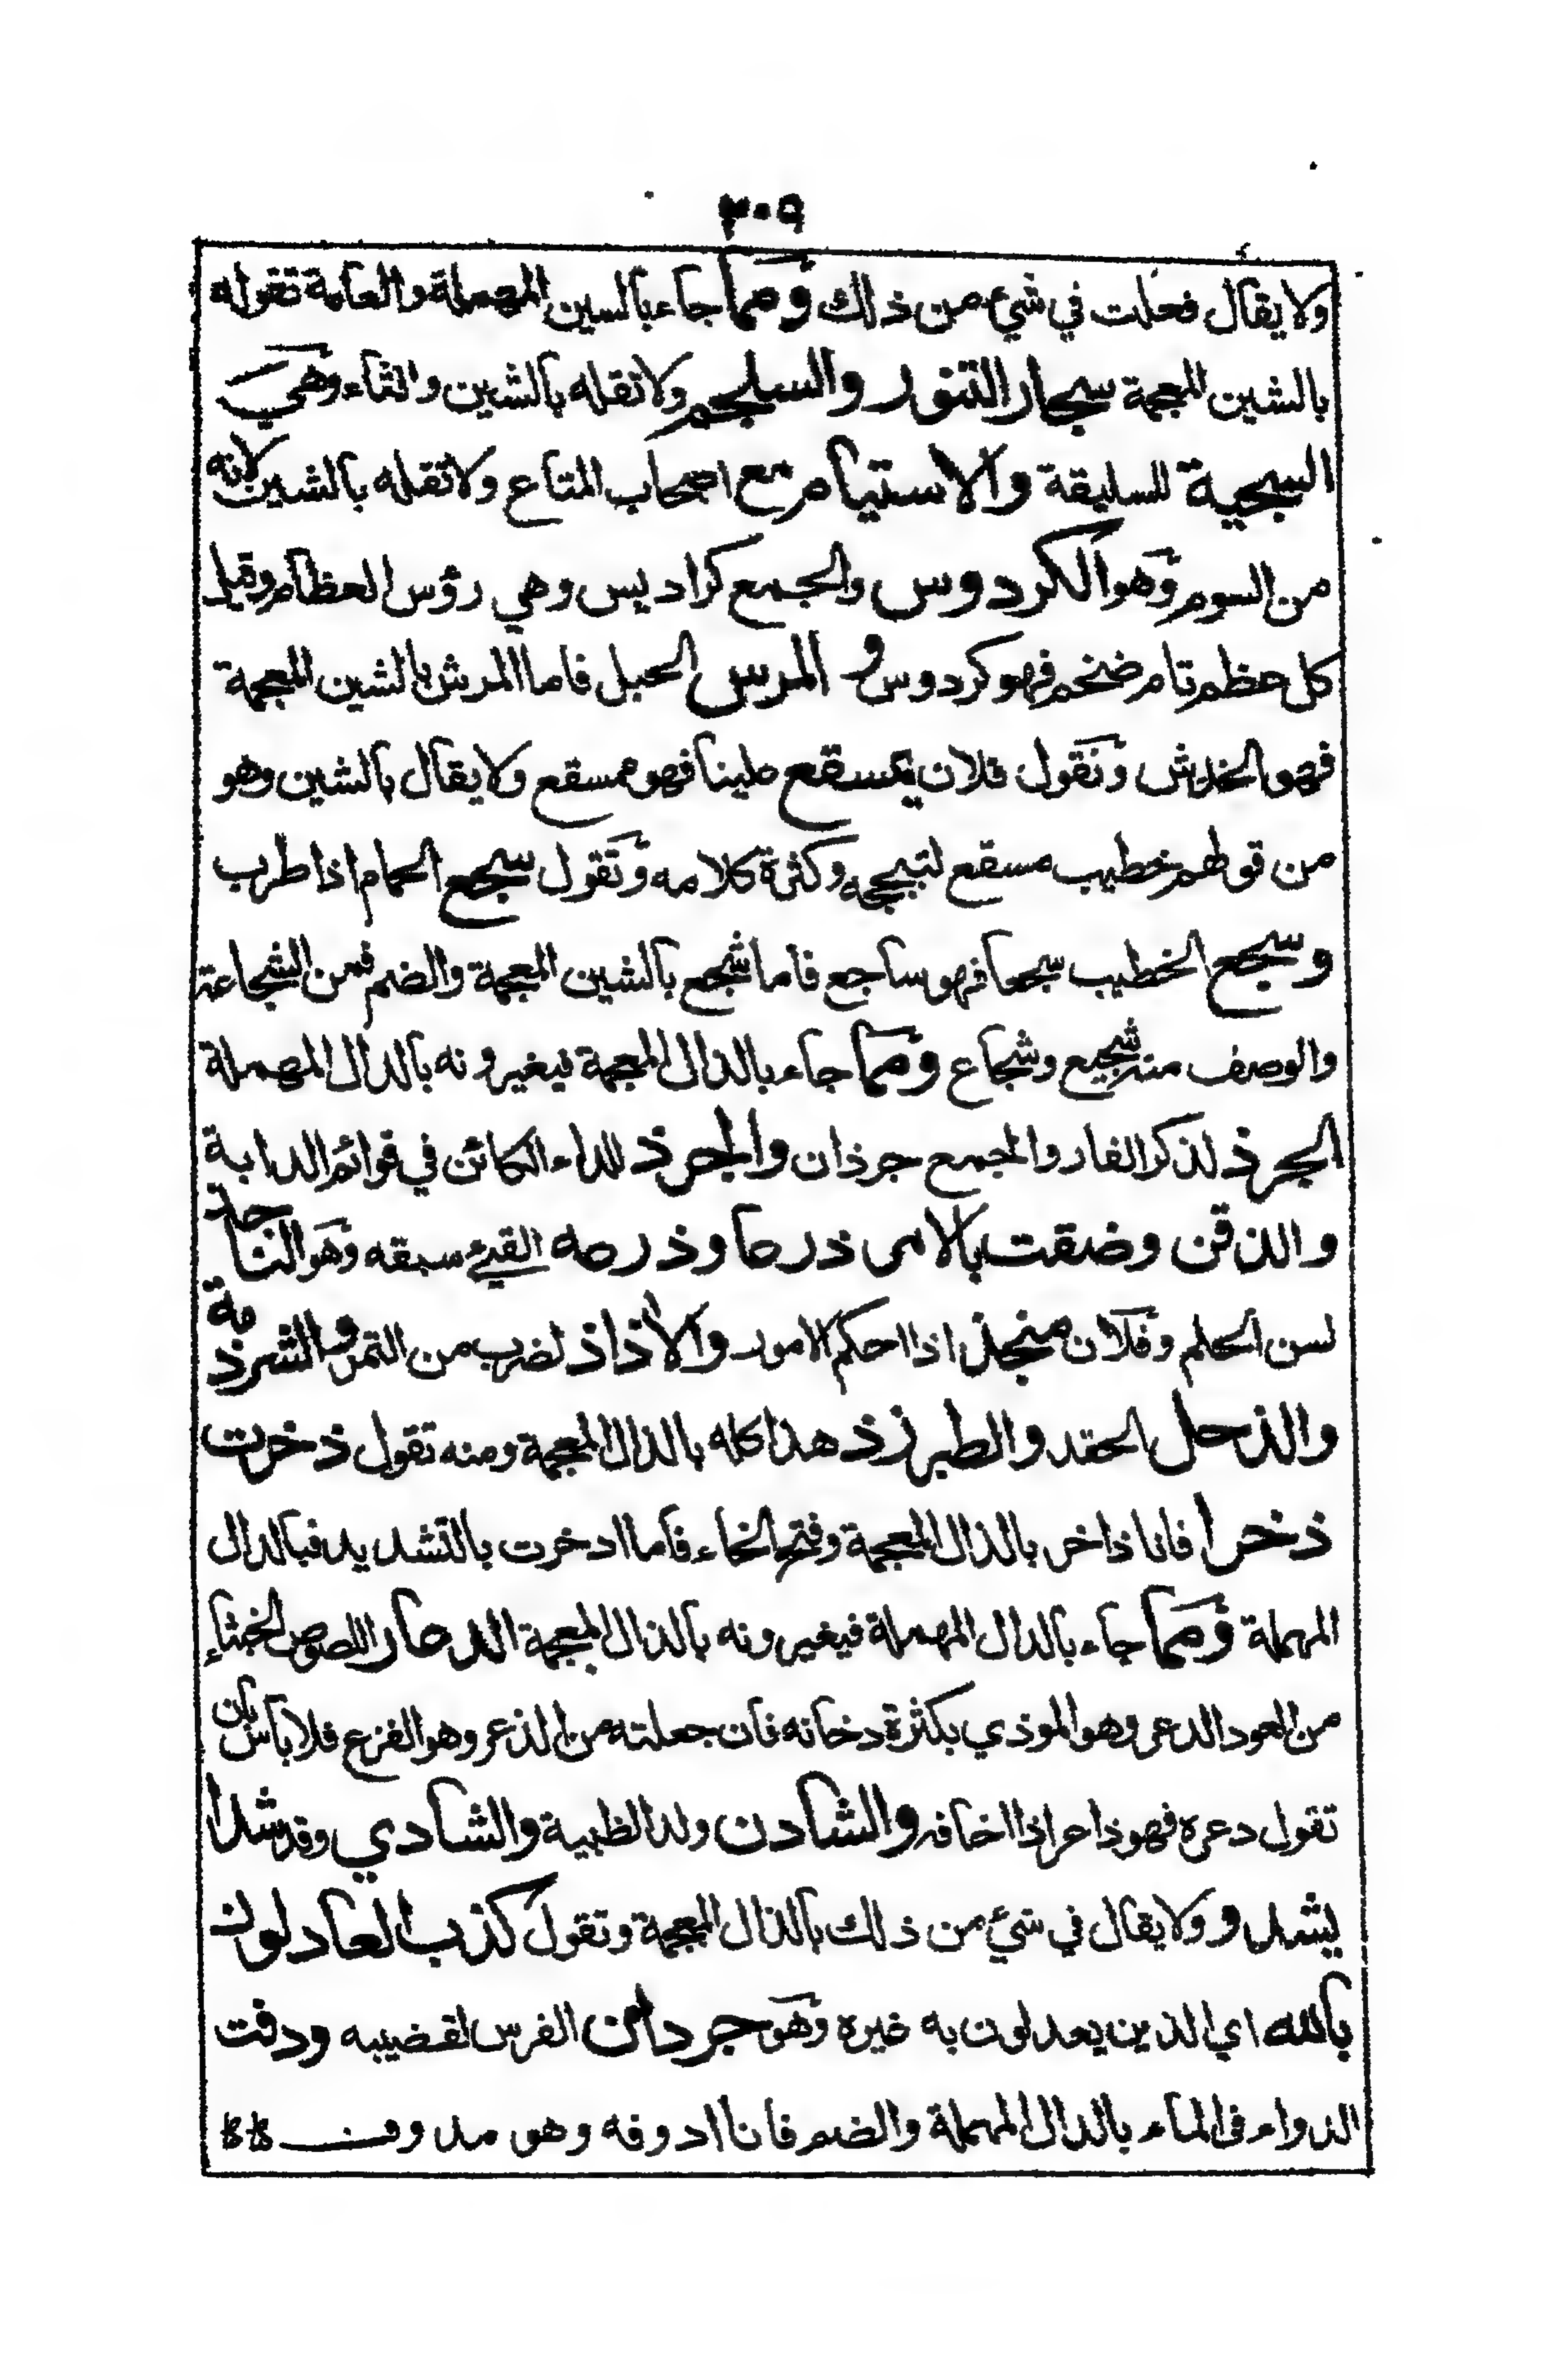 ٣٠٩
ولا يقال فعلت في شيء من ذلك ومما جاء بالسين المهملة والعامة تقوله
بالشين المعجمة سجار التنور والسلجم ولا تقله بالشين والثاء وهي
السجية للسليقة والاستيام مع اصحاب المتاع ولا تقله بالشين لانه
من السوم وهو الكردوس والجمع كراديس وهي رؤس العظام وقيل
كل عظم تام ضخم فهو كردوس و المرس الحبل فاما المرش بالشين المعجمة
فهو الخدش وتقول فلان يمسقع علينا فهو ممسقع ولا يقال بالشين وهو
من قولهم خطيب مسقع لتبجحه وكثرة كلامه وتقول سجع الحمام اذا طرب
وسجع الخطيب سجعا فهو ساجع فاما شجع بالشين المعجمة والضم فمن الشجاعة
والوصف منه شجيع وشجاع ومما جاء بالذال المعجمة فيغيرونه بالدال المهملة
الجرذ لذكر الفار والجمع جرذان والجرذ للداء الكائن في قوائم الدابة
والذقن وضقت بالامر ذرعا وذرعه القيئ سبقه وهو الناجذ
لسن الحلم وفلان منجذ اذا احكم الامور والاذاذ لضرب من التمر والشرذمة
والذحل الحقد والطبرزذ هذا كله بالذال المعجمة ومنه تقول ذخرت
ذخرا فانا ذاخر بالذال المعجمة وفتح الخاء فاما ادخرت بالتشديد فبالدال
المهملة ومما جاء بالدال المهملة فيغيرونه بالذال المعجمة الدعار اللصوص الخبثاء
من العود الدعر وهو الموذي بكثرة دخانه فان جعلته من الذعر وهو الفزع فلا باس بان
تقول دعره فهو داعر اذا اخافه والشادن ولد الظبية والشادي وقد شدا
يشدو ولا يقال في شيء من ذلك بالذال المعجمة وتقول كذب العادلون
بالله اي الذين يعدلون به غيره وهو جردان الفرس لقضيبه ودفت
الدواء في الماء بالدال المهملة والضم فانا ادوفه وهو مدوف